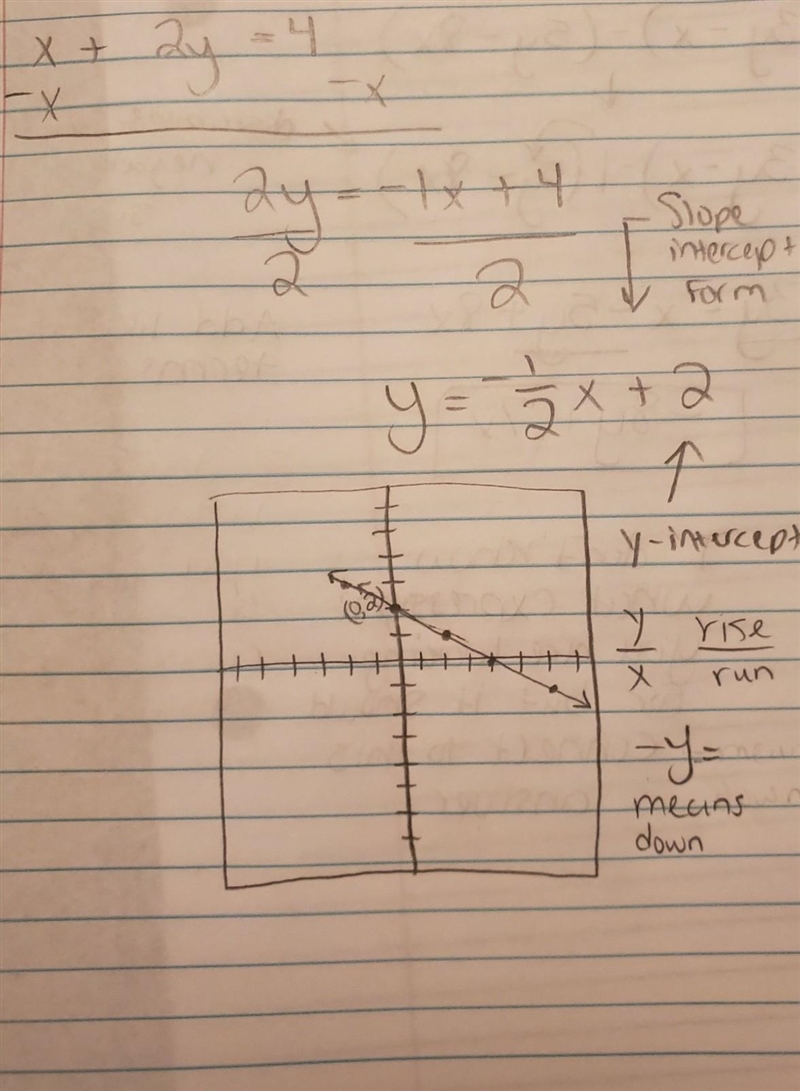 x + 2y = 4
-x -x
2y = -1x + 4
2 2
Slope
intercept
form
y = -1/2 x + 2
y-intercept
(0,2)
y rise
x run
-y =
means
down